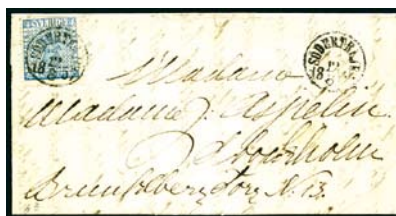 SVERIGE
SÖDERTELJE
SÖDERTELJE
Madame
Madame J. Aspelin
Stockholm
Brunkebergstorg N. 13.